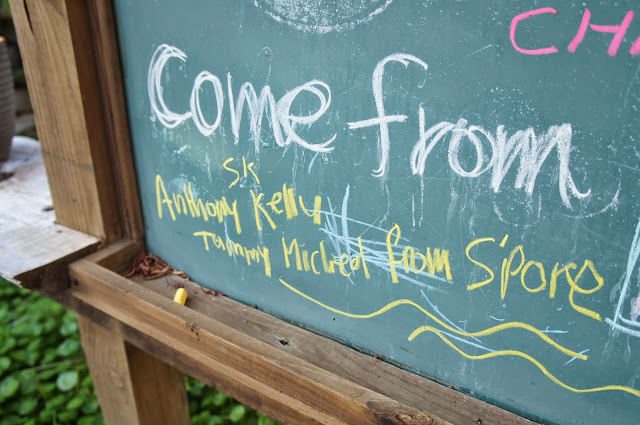 CHA
Come from
SK
Anthony Kelly
Tammy Micheal from S'pore